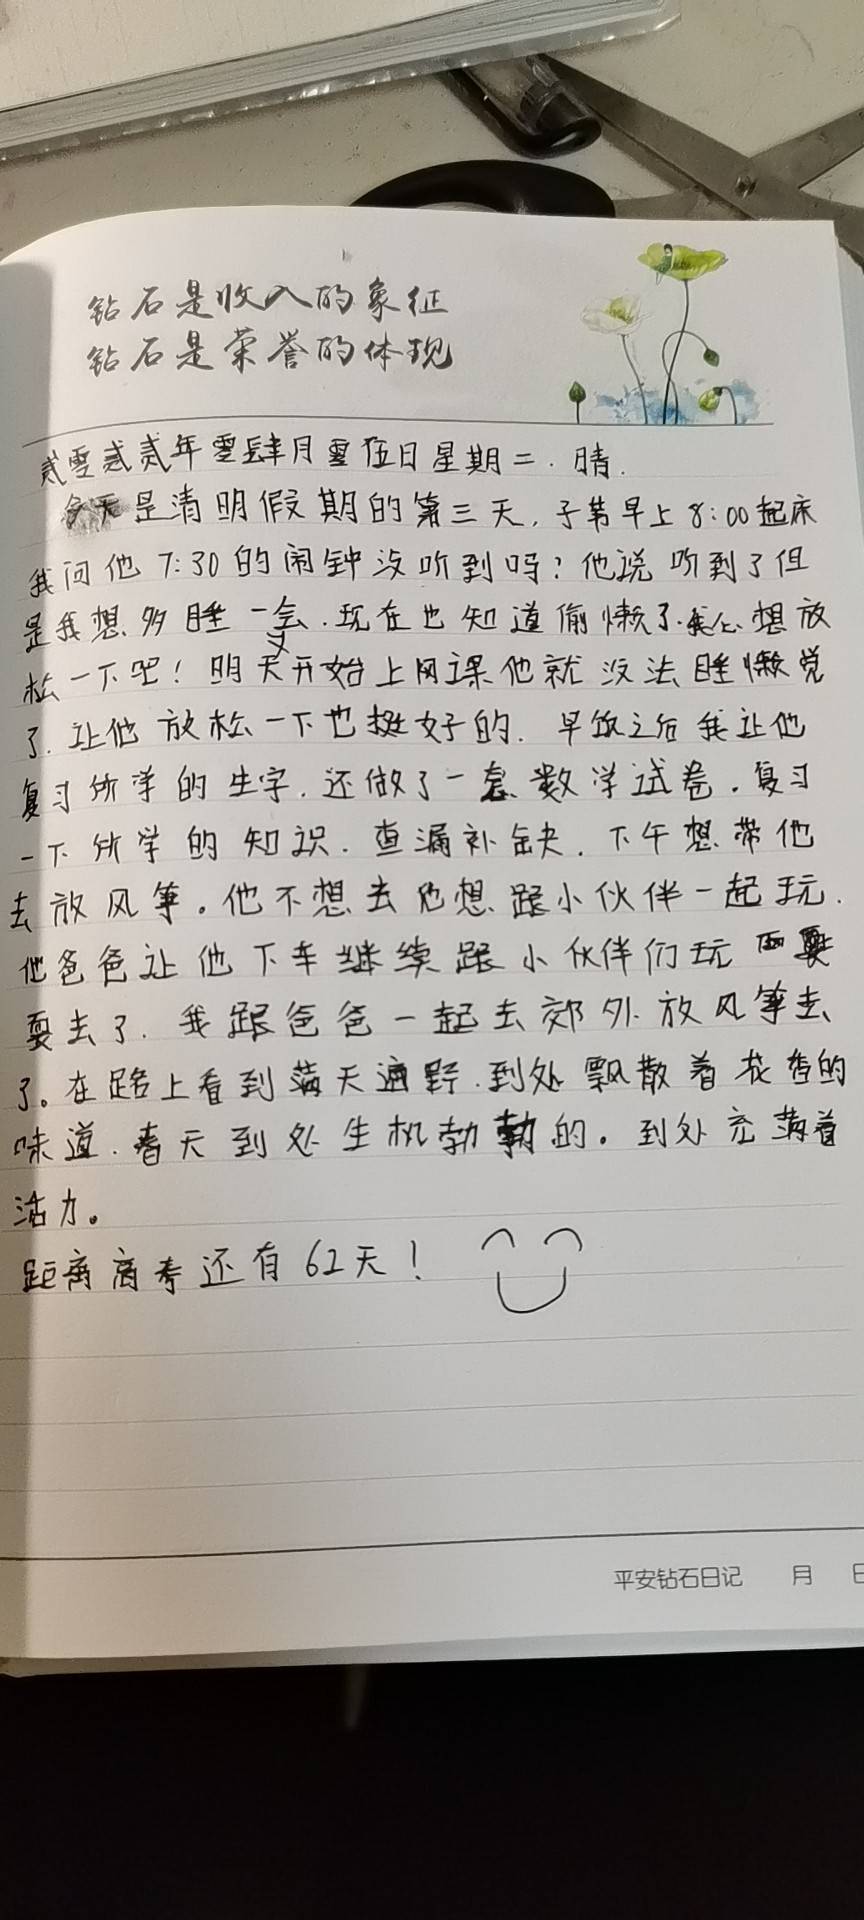 钻石是收入的象征
钻石是荣誉的体现
贰零贰贰年零肆月零伍日星期二.晴.
今天是清明假期的第三天,子芾早上8:00起床
我问他7:30的闹钟没听到吗?他说听到了但
是我想多睡一会.现在也知道偷懒了.我心想放
松一下吧!明天开始上网课他就没法睡懒觉
了.让他放松一下也挺好的.早饭之后我让他
复习所学的生字.还做了一套数学试卷.复习
一下所学的知识.查漏补缺.下午想带他
去放风筝。他不想去他想跟小伙伴一起玩.
他爸爸让他下车继续跟小伙伴们玩
耍去了.我跟爸爸一起去郊外放风筝去
了。在路上看到满天遍野.到处飘散着花香的
味道.春天到处生机勃勃的。到处充满着
活力。
距离高考还有62天!
平安钻石日记 月 日